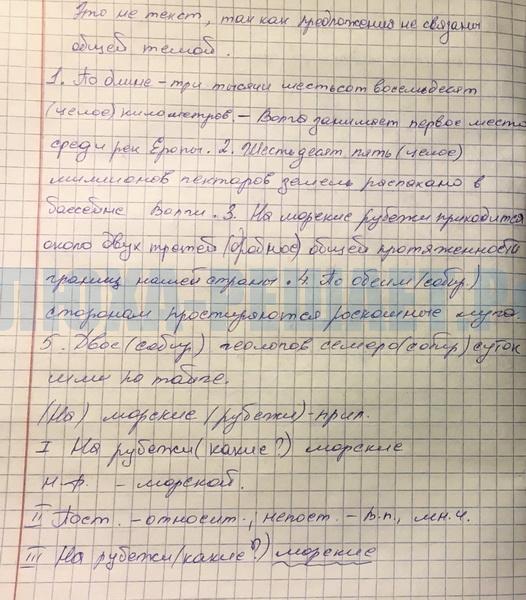 Это не текст, так как предложения не связаны
общей темой.
1. По длине - три тысячи шестьсот восемьдесят
(целое) километров, - Волга занимает первое место
среди рек Европы. 2. Шестьдесят пять (целое)
миллионов гектаров земель распахано в
бассейне Волги. 3. На морские рубежи приходится
около двух третей (дробное) общей протяженности
границ нашей страны. 4. По обеим (собир.)
сторонам простираются роскошные луга.
5. Двое (собир.) геологов семеро (собир.) суток
шли по тайге.
(На) морские (рубежи) - прил.
I На рубежи (какие?) морские
н.ф. - морской.
II Пост. - относит., непост. - В.п., мн.ч.
III На рубежи (какие?) морские